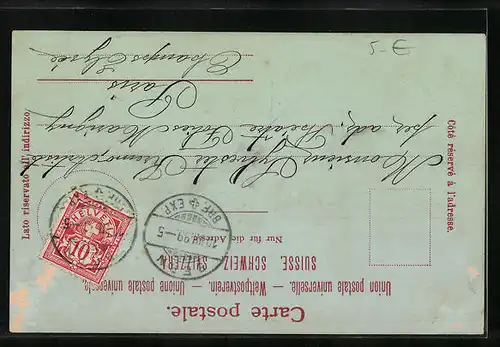 Carte postale.
Union postale universelle. — Weltpostverein. — Unione postale universale.
SUISSE SCHWEIZ SVIZZERA
Nur für die Adresse
Côté réservé à l'adresse.
Lato riservato all'indirizzo
HELVETIA
10
BRF. EXP.
Monsieur Sylvestre
per adr. Théatre Folies Marigny
Paris
Champs Elysée
5-€